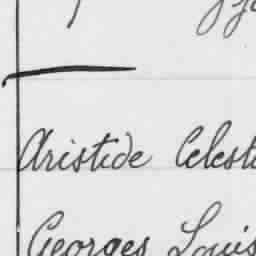 Aristide Celest
Georges Louis